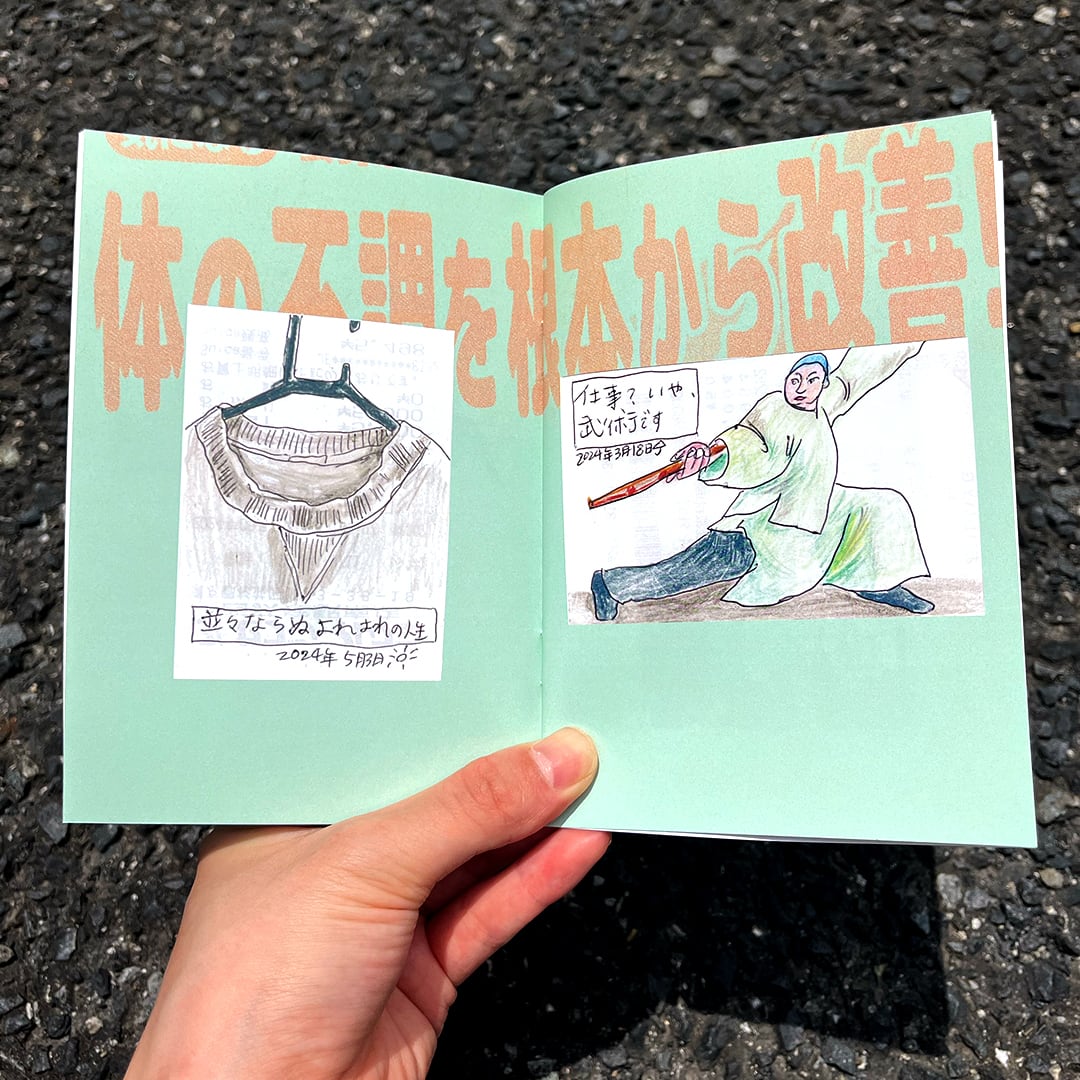 体の不調を根本から改善!
並々ならぬよれよれの人生
2024年 5月3日
仕事?いや、
武術です
2024年3月18日